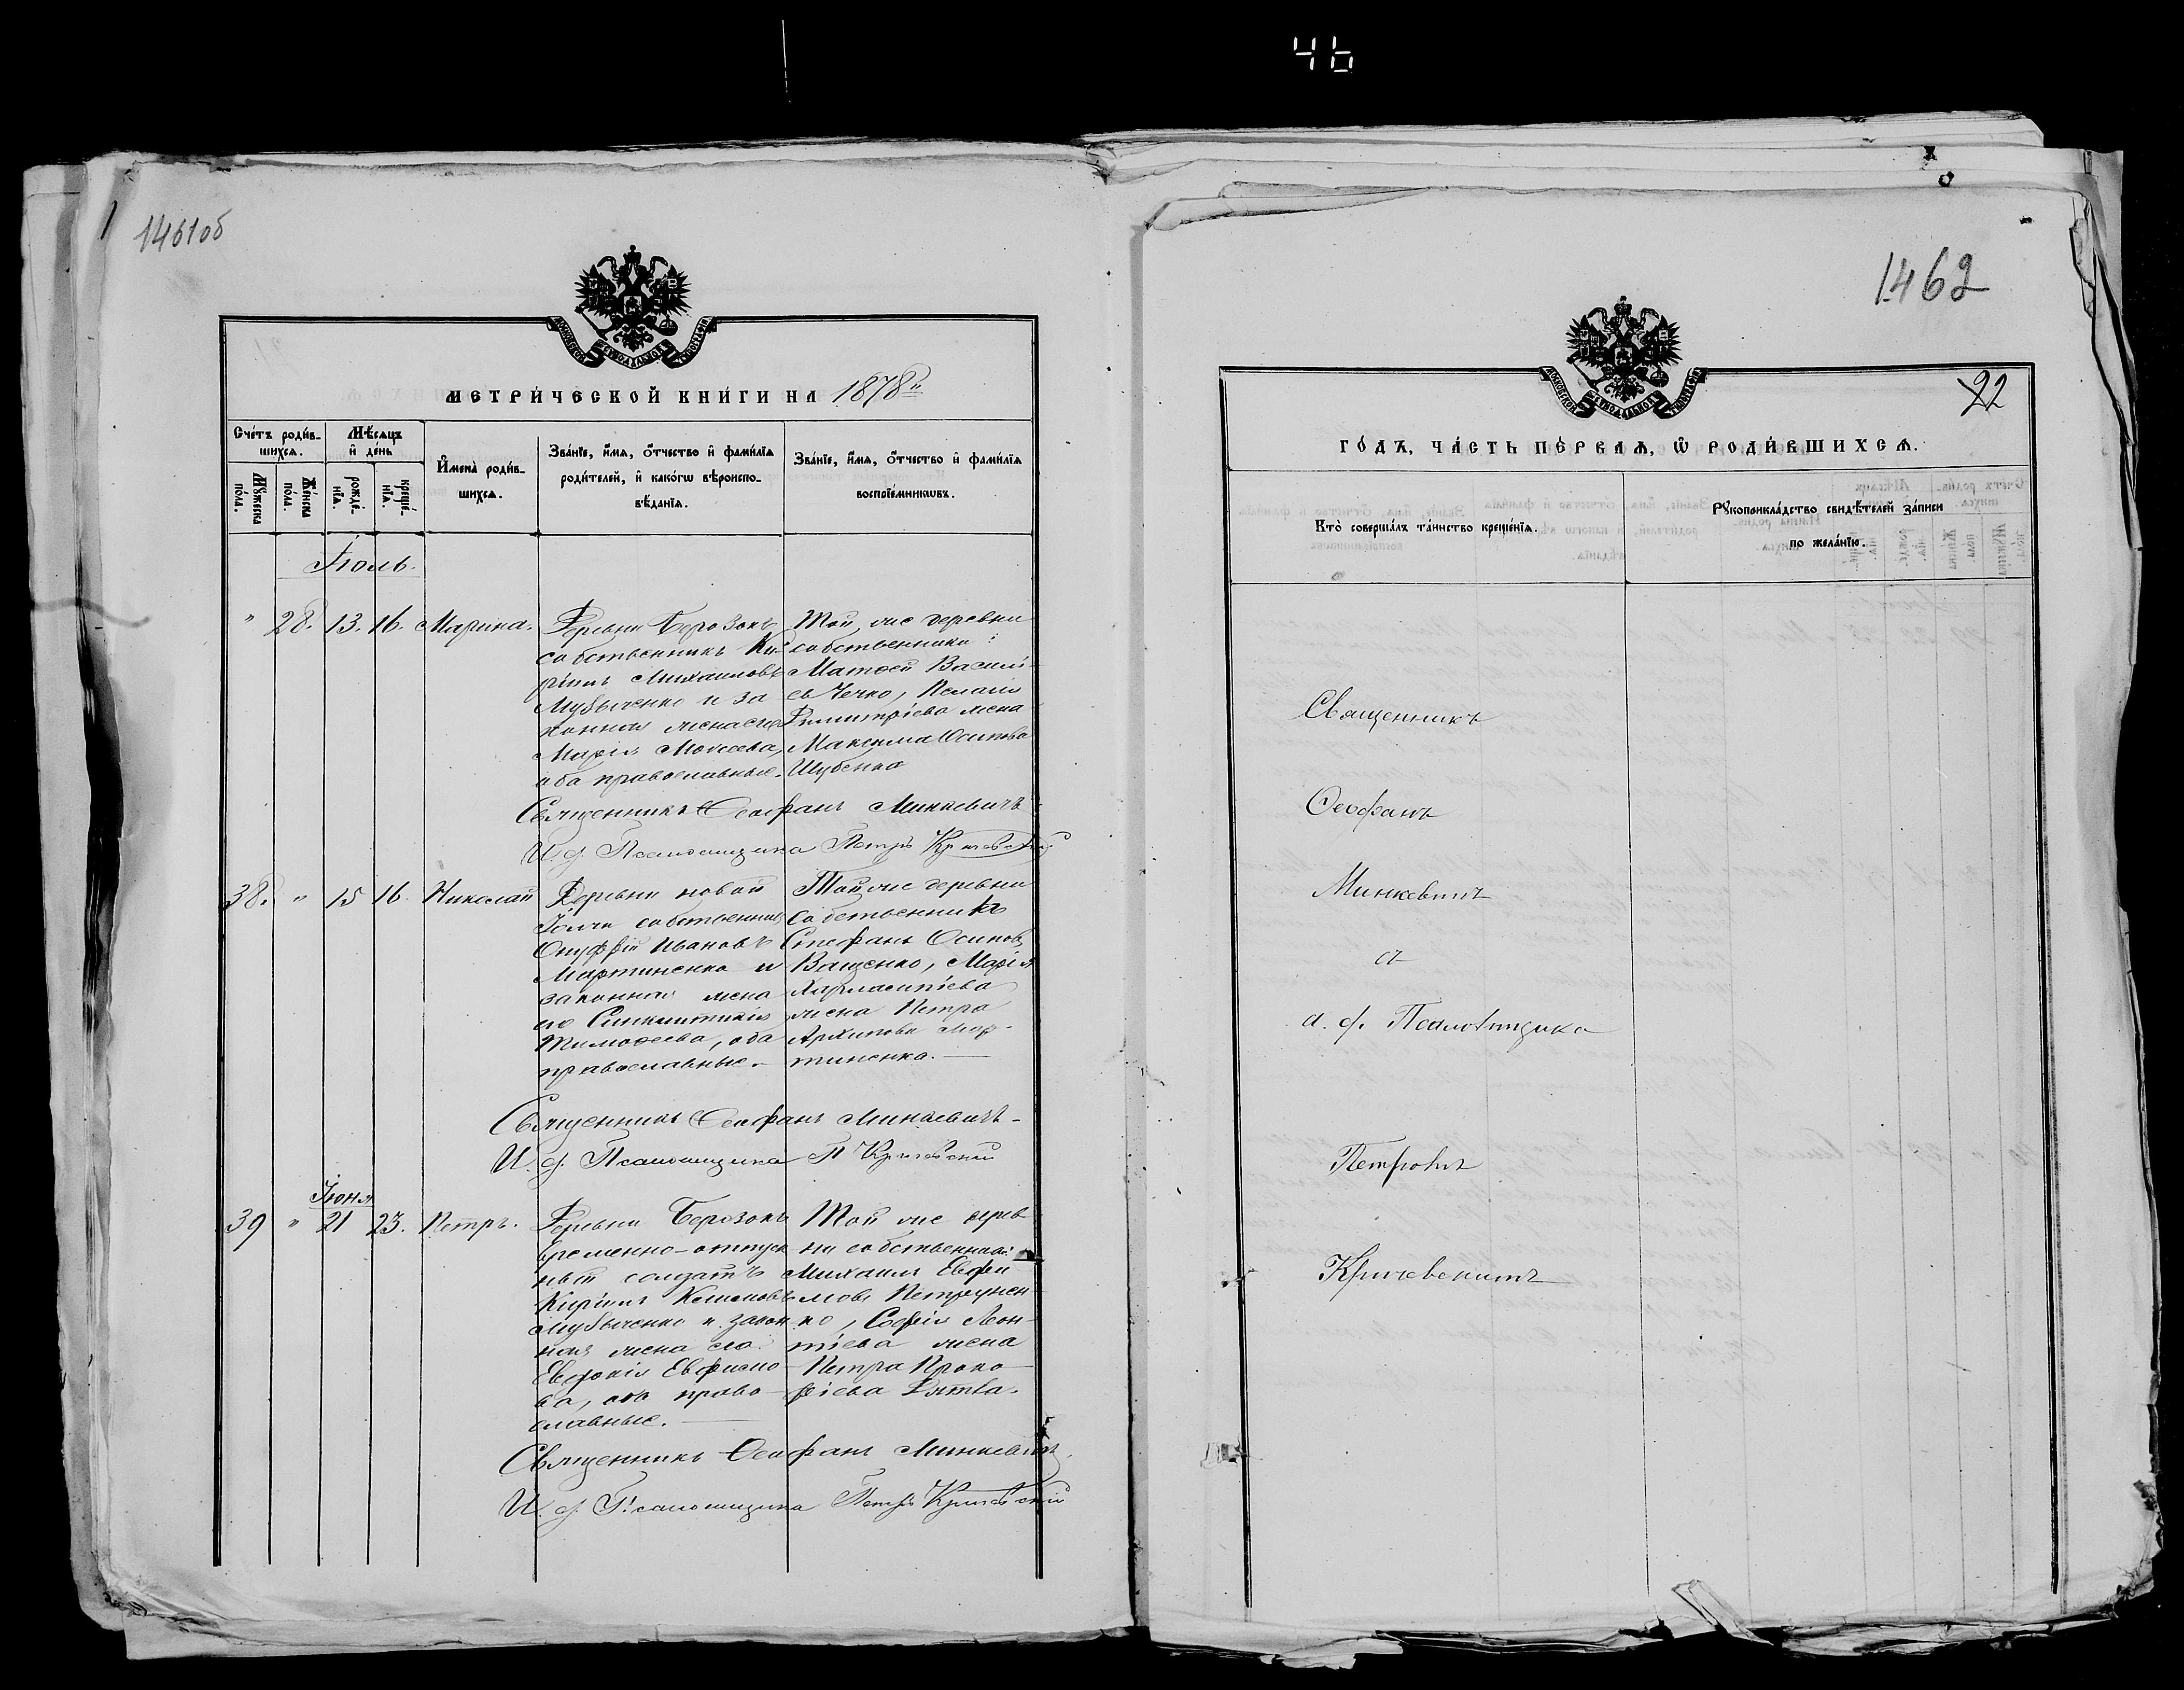 46
1461об
МЕТРИ́ЧЕСКОЙ КНИ́ГИ НА 1878й
Сче́тъ роди́в-
шихсѧ.
Мꙋ́жеска по́ла.
Же́нска по́ла.
Мѣ́сѧцъ
и҆ де́нь
рожде́-нїѧ.
креще́-нїѧ.
И҆мена̀ роди́в-
шихсѧ.
Зва́нїе, и҆́мѧ, ѻ҆́тчество и҆ фами́лїѧ
роди́телей, и҆ како́гѡ вѣроиспо-
вѣ́данїѧ.
Зва́нїе, и҆́мѧ, ѻ҆́тчество и҆ фами́лїѧ
воспрїе́мникѡвъ.
Іюль.
" 28. 13. 16. Марина.
Деревни Березокъ
собственникъ Ки-
рiилъ Михаиловъ
Музыченко и за
конная жена его
Марiя Моисеева,
оба православные.
Той же деревни
собственники:
Матѳей Василь-
евъ Чечко, Пелагiя
Димитрiева жена
Максима Осипова
Шубенка
Священникъ Ѳеофанъ Минкевичъ
И. д. Псаломщика Петръ Кричевскiй
38. " 15 16. Николай
Деревни новой
собственникъ
Онуфрiй Ивановъ
Мартиненко и
законная жена
его Синклитикiя
Тимоѳеева, оба
православные.
Той же деревни
Собственникъ
Стефанъ Осиповъ
Ващенко, Марiя
жена Петра
Архипова Мар-
тиненка.
Священникъ Ѳеофанъ Минкевичъ
И. д. Псаломщика П Кричевскiй
Іюня
39 " 21 23. Петръ.
Деревни Березокъ
временно-отпуск
ный солдатъ
Кирiилъ
Музыченко и закон
ная жена его
Евдокiя Евфимо-
ва, оба право-
славные.
Той же дерев
ни собственники:
Михаилъ Евфи
мовъ Петрунен
ко, Софiя Леон-
тiева жена
Петра Проко-
фiева
Священникъ Ѳеофанъ Минкевичъ
И. д. Псаломщика Петръ Кричевскiй
1462
22
ГО́ДЪ, ЧА́СТЬ ПЕ́РВАѦ, Ѡ҆ РОДИ́ВШИХСѦ.
Кто̀ соверша́лъ та́инство креще́нїѧ.
Рꙋкоприкла́дство свидѣ́телей за́писи
по жела́нїю.
Священникъ
Ѳеофанъ
Минкевичъ
съ
и. д. Псаломщика
Петромъ
Кричевскимъ